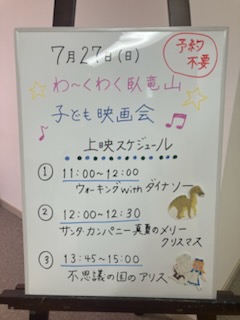 7月27日(日)
予約
不要
わ~くわく臥竜山
子ども映画会
上映スケジュール
① 11:00~12:00
ウォーキングwithダイナソー
② 12:00~12:30
サンタ・カンパニー真夏のメリー
クリスマス
③ 13:45~15:00
不思議の国のアリス